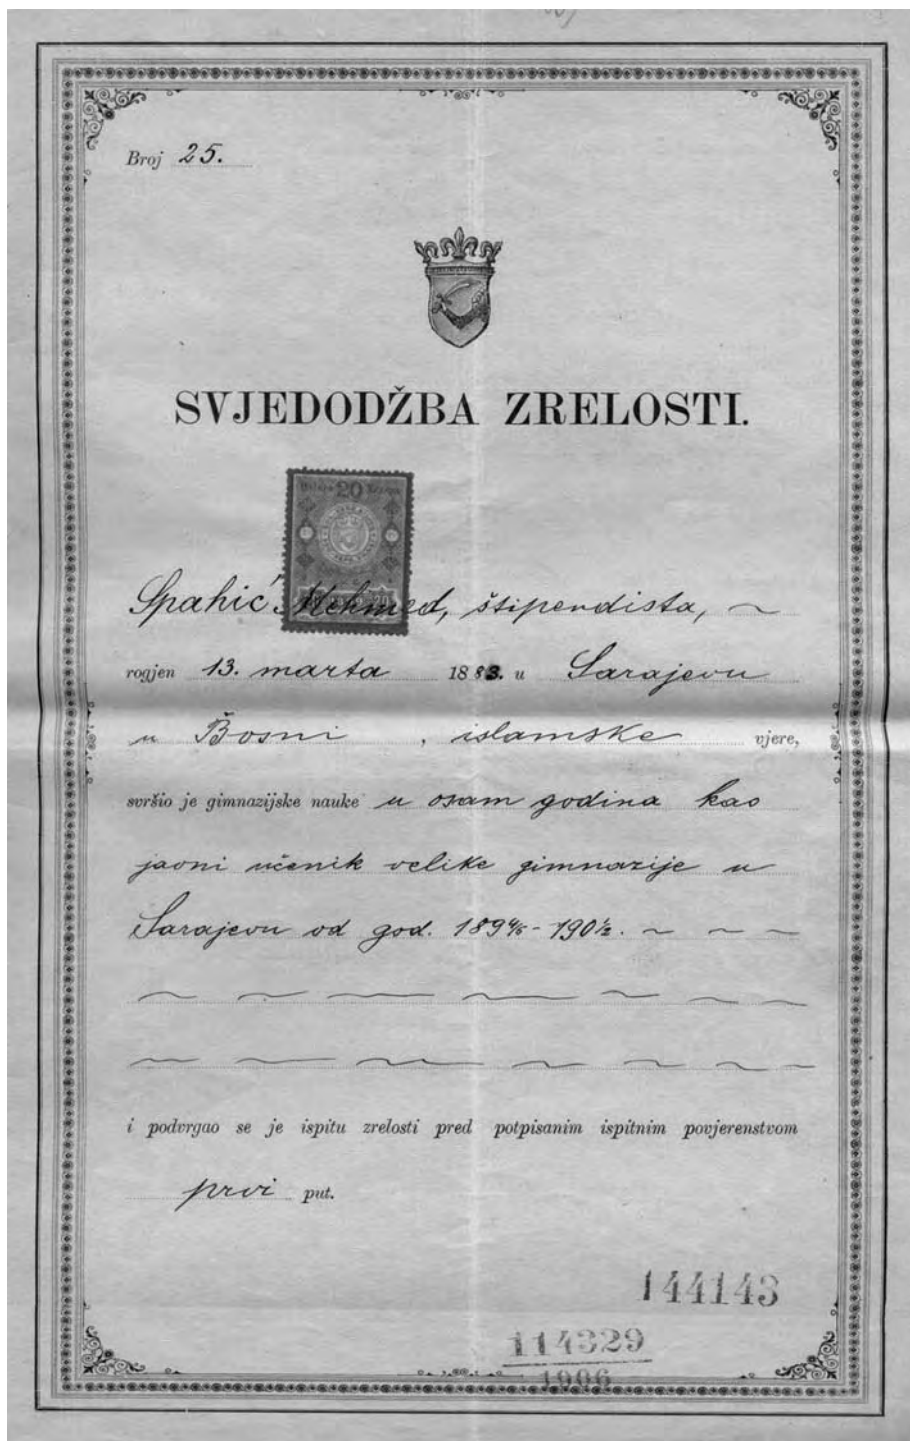 Broj 25.
SVJEDODŽBA ZRELOSTI.
20
Spahić Mehmed, štipendista, ~
rogjen 13. marta 1883. u Sarajevu
u Bosni, islamske vjere,
svršio je gimnazijske nauke u osam godina kao
javni učenik velike gimnazije u
Sarajevu od god. 1894/5 - 1901/2. ~ ~ ~
i podvrgao se je ispitu zrelosti pred potpisanim ispitnim povjerenstvom
prvi put.
144143
114329
1906